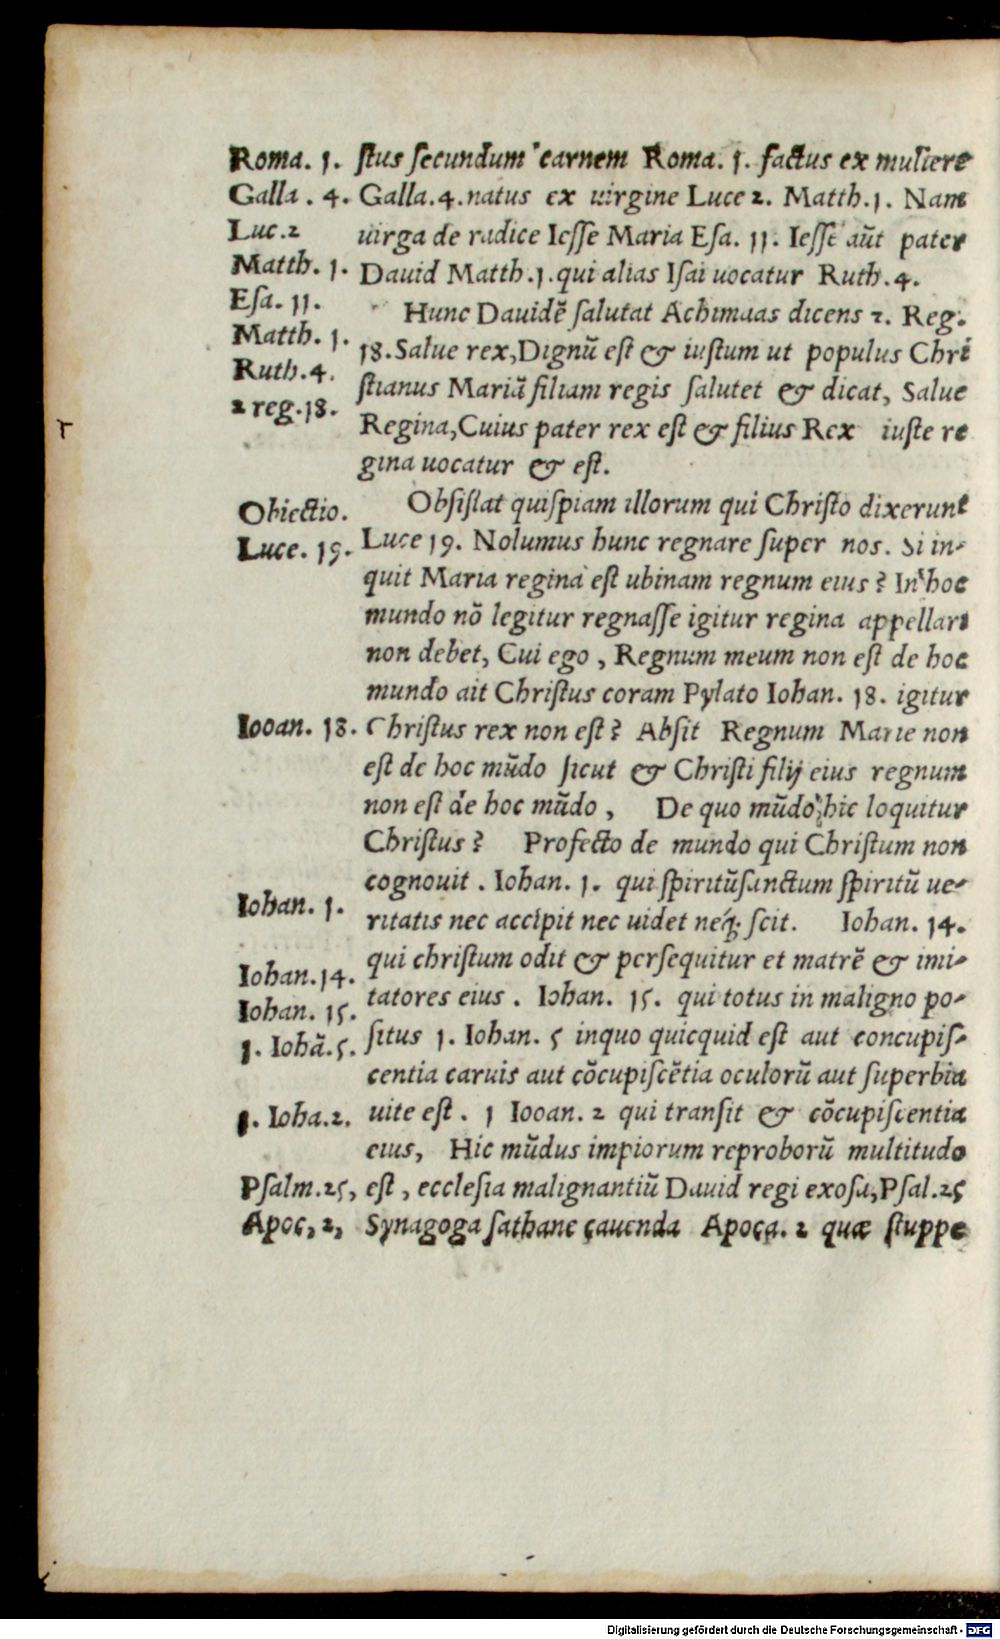 Roma. 1. ſtus ſecundum carnem Roma. 1. factus ex muliere
Galla . 4. Galla.4.natus ex uirgine Luce 2. Matth.1. Nam
Luc.2 uirga de radice Ieſſe Maria Eſa. 11. Ieſſe aūt pater
Matth. 1. Dauid Matth.1.qui alias Iſai uocatur Ruth.4.
Eſa. 11. Hunc Dauidē ſalutat Achimaas dicens 2. Reg.
Matth. 1. 18.Salue rex,Dignū eſt & iuſtum ut populus Chri
Ruth.4. ſtianus Mariā filiam regis ſalutet & dicat, Salue
2 reg.18. Regina,Cuius pater rex eſt & filius Rex iuſte re
r
gina uocatur & eſt.
Obiectio. Obſiſtat quiſpiam illorum qui Chriſto dixerunt
Luce. 19. Luce 19. Nolumus hunc regnare ſuper nos. Si in-
quit Maria regina eſt ubinam regnum eius ? In hoc
mundo nō legitur regnaſſe igitur regina appellari
non debet, Cui ego , Regnum meum non eſt de hoc
mundo ait Chriſtus coram Pylato Iohan. 18. igitur
Iooan. 18. Chriſtus rex non eſt ? Abſit Regnum Marie non
eſt de hoc mūdo ſicut & Chriſti filij eius regnum
non eſt de hoc mūdo , De quo mūdo hic loquitur
Chriſtus ? Profecto de mundo qui Chriſtum non
Iohan. 1. cognouit . Iohan. 1. qui ſpiritūſanctum ſpiritū ue-
ritatis nec accipit nec uidet neq; ſcit. Iohan. 14.
Iohan.14. qui chriſtum odit & perſequitur et matrē & imi-
Iohan. 15. tatores eius . Iohan. 15. qui totus in maligno po-
1. Iohā.5. ſitus 1. Iohan. 5 inquo quicquid eſt aut concupiſ-
centia caruis aut cōcupiſcētia oculorū aut ſuperbia
1. Ioha.2. uite eſt . 1 Iooan. 2 qui tranſit & cōcupiſcentia
eius, Hic mūdus impiorum reproborū multitudo
Pſalm.25, eſt , eccleſia malignantiū Dauid regi exoſa,Pſal.25
Apoc, 2, Synagoga ſathane çauenda Apoça. 2 quæ ſtuppe
Digitalisierung gefördert durch die Deutsche Forschungsgemeinschaft - DFG